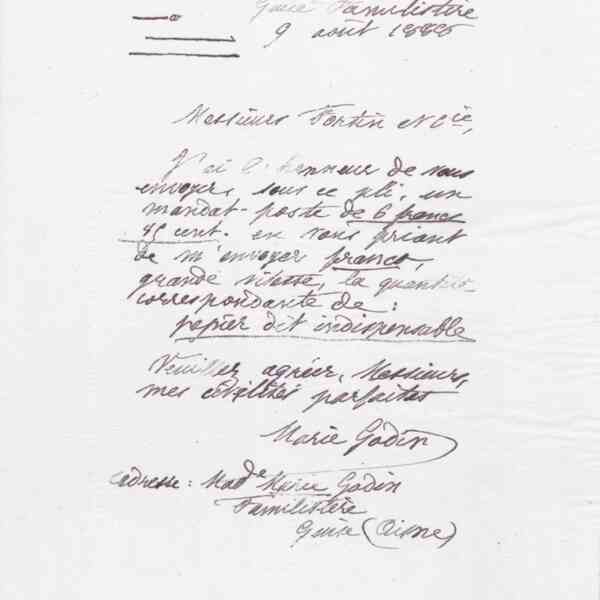 Guise Familistère
9 août 1888
Messieurs Fortin et Cie,
J'ai l'honneur de vous
envoyer, sous ce pli, un
mandat-poste de 6 francs
45 cent. en vous priant
de m'envoyer franco,
grande vitesse, la quantité
correspondante de :
papier dit indispensable
Veuillez agréer, Messieurs,
mes civilités parfaites
Marie Godin
adresse : Made Marie Godin
Familistère
Guise (Aisne)